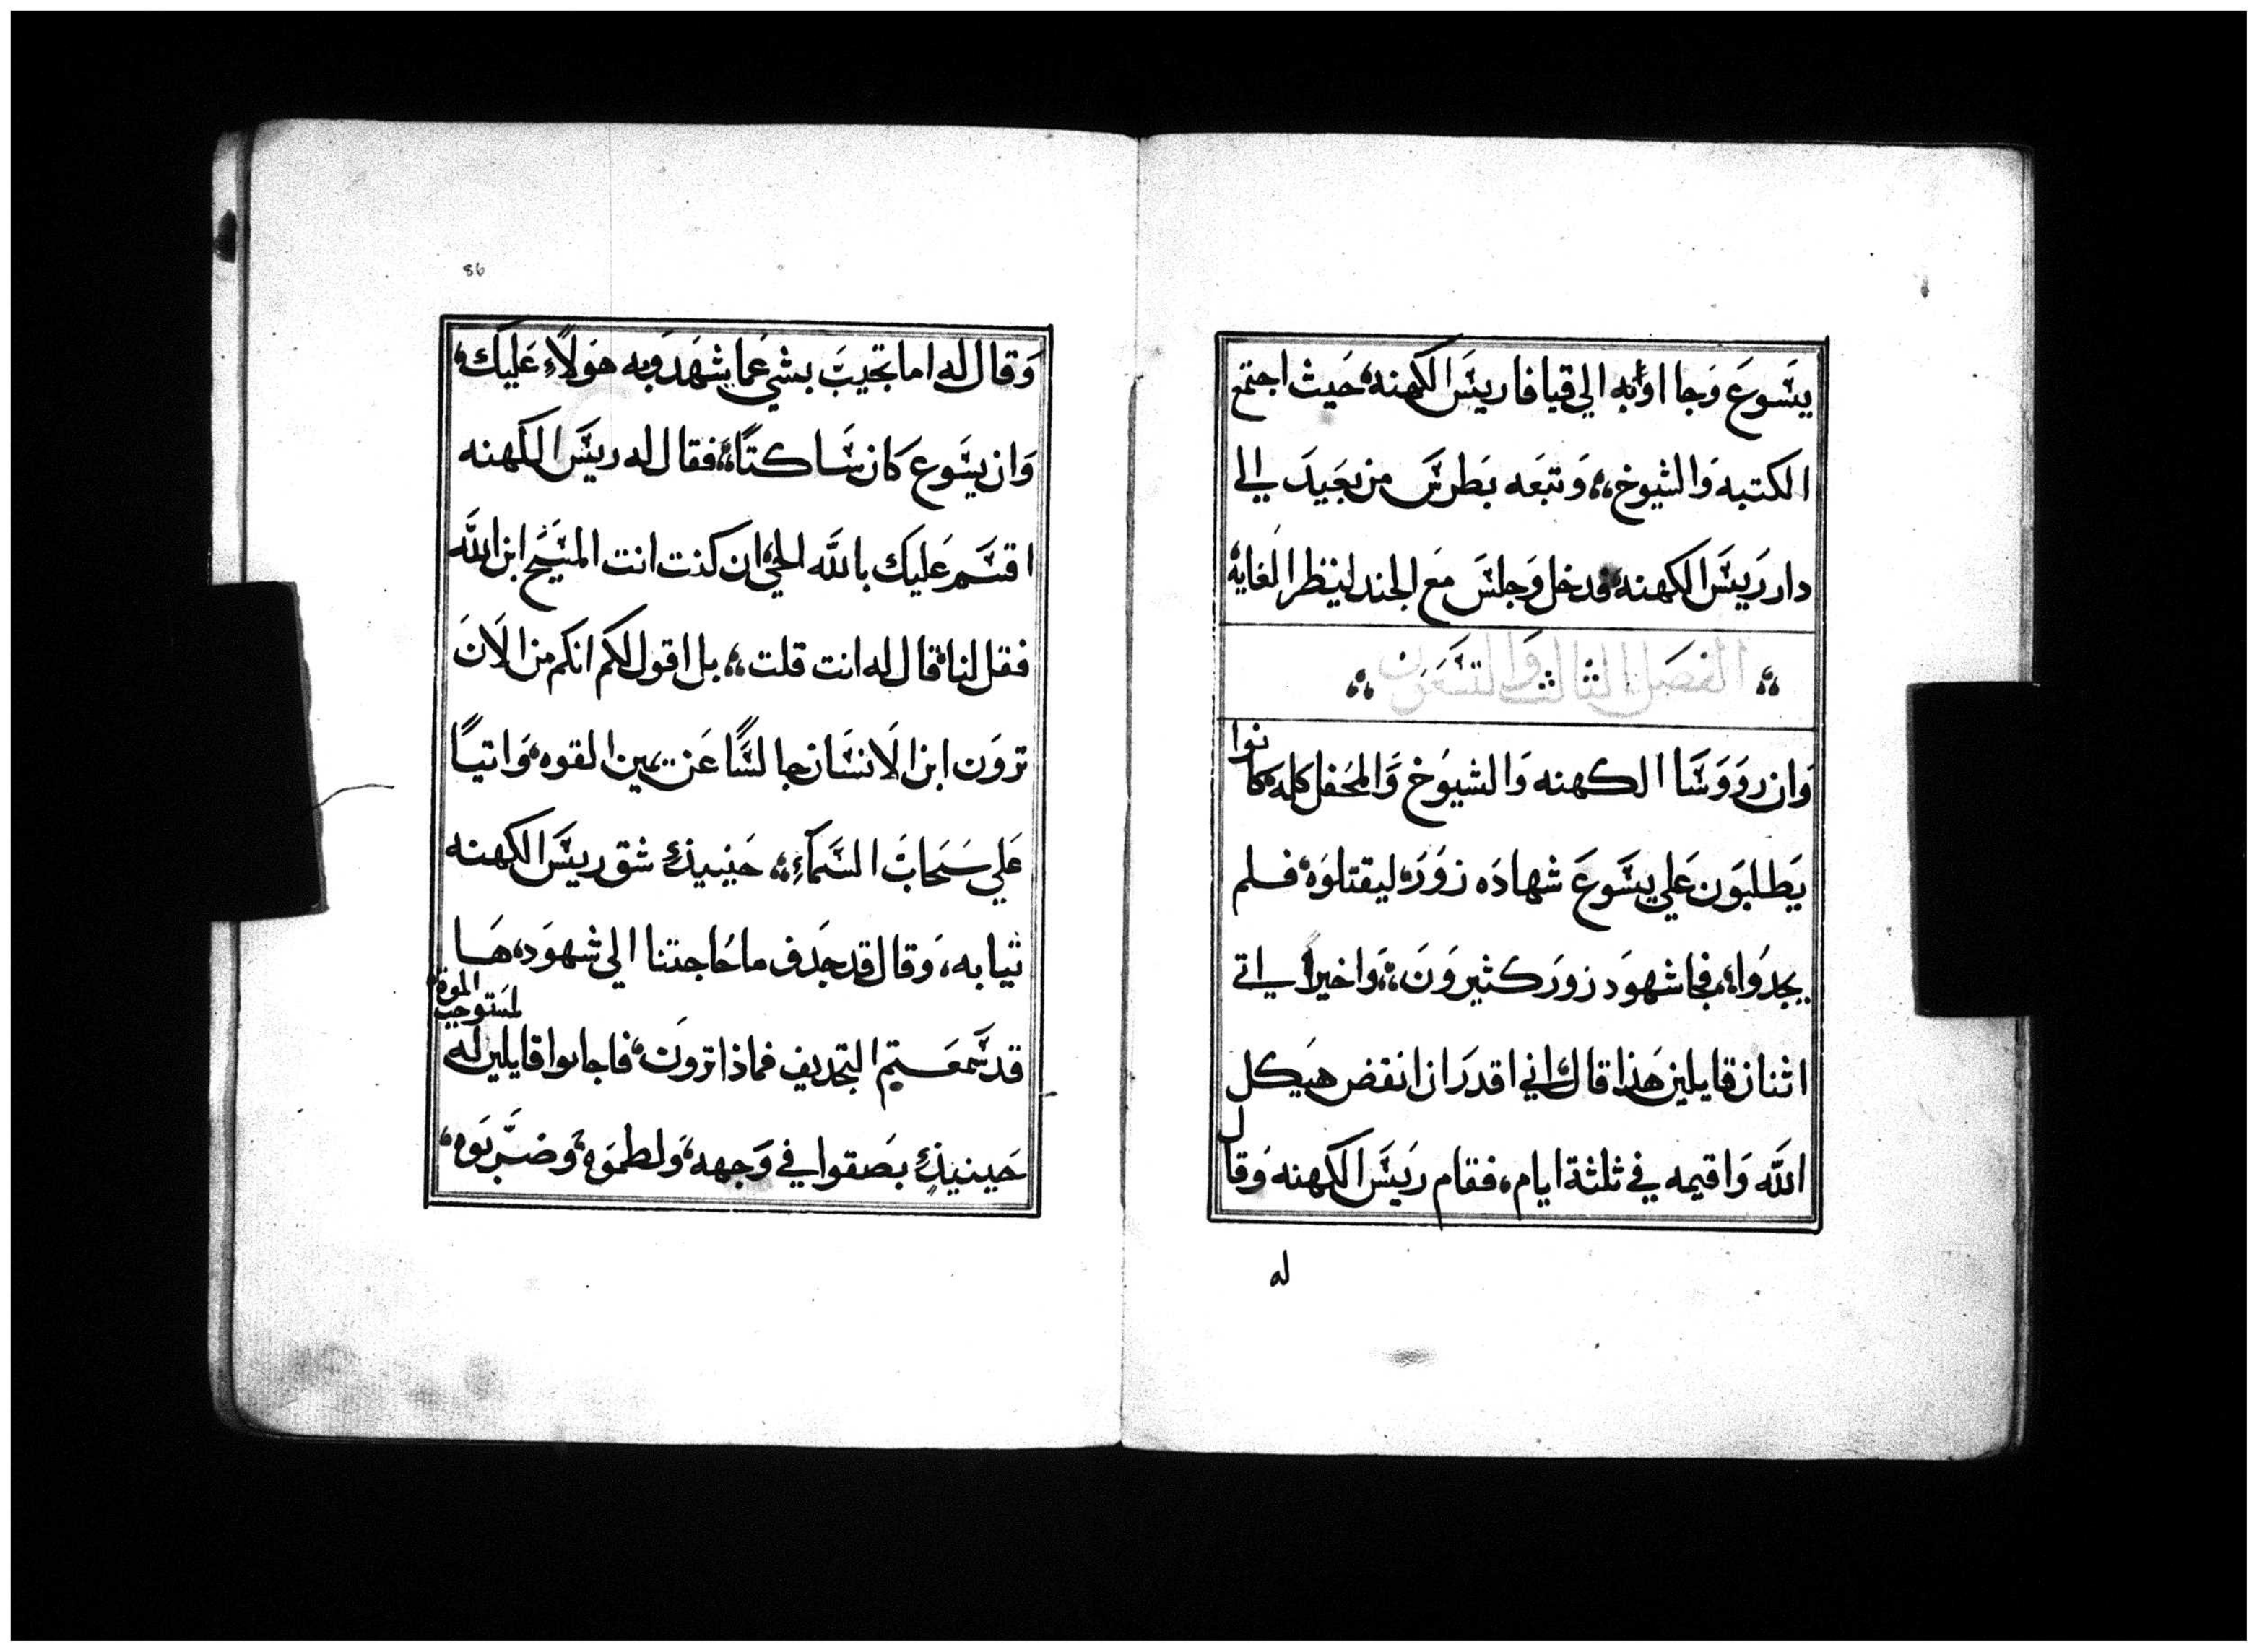 يسَوعَ وَجا اوَبه الي قيافا رييسَ الكهنه، حَيث اجتمع
الكتبه وَالشيوخ،، وَتبعَه بَطرسَ من بَعَيدَ الي
دار رَييسَ الكهنه، فدخل وَجلسَ مَع الجند لينظر الغايه،
الفصَل الثالث وَالتسَعَون
وَان رووَسَا الكهنه وَالشيوَخ وَالمحَفل كله، كانوا
يَطلبوَن عَلي يسَوعَ شهادَه زوَرَه ليقتلوَه، فلم
يجدوَا، فجا شهوَد زوَرَ كثيروَنَ،، وَاخيراً اتي
اثنان قايلين هَذا قال اني اقدرَ ان انقض هيَكل
اللَّه وَاقيمه في ثلثة ايام، فقام رَييسَ الكهنه وَقال
له
86
وَقال له اما تجيبَ بشي عَما شهَدَوَ به هَولاَءِ عَليَك،
وَان يسَوع كان سَاكتاً،، فقال له رييسَ الكَهنه
اقسَم عَليَك باللَّه الحَي، ان كنت انت المسَيَح ابن اللَّه
فقل لنا، قال له انت قلت،، بل اقول لكَم انكَم من الاَنَ
تروَن ابن الاَنسَان جالسًا عَن يمين القوه، وَاتيًا
عَلي سَحَابَ السَمآءِ،، حَينيذٍ شق رييسَ الكهنه
ثيابه، وَقال قد جَدف ما حَاجتنا الي شهوَد، هَا
قد سَمعَتم التجديف فماذا تروَن، فاجابوا قايلين له
لمَستوجبَ الموة،
حَينيذٍ بصَقوا في وَجهه، وَلطموَه، وَضرَّبوَه،